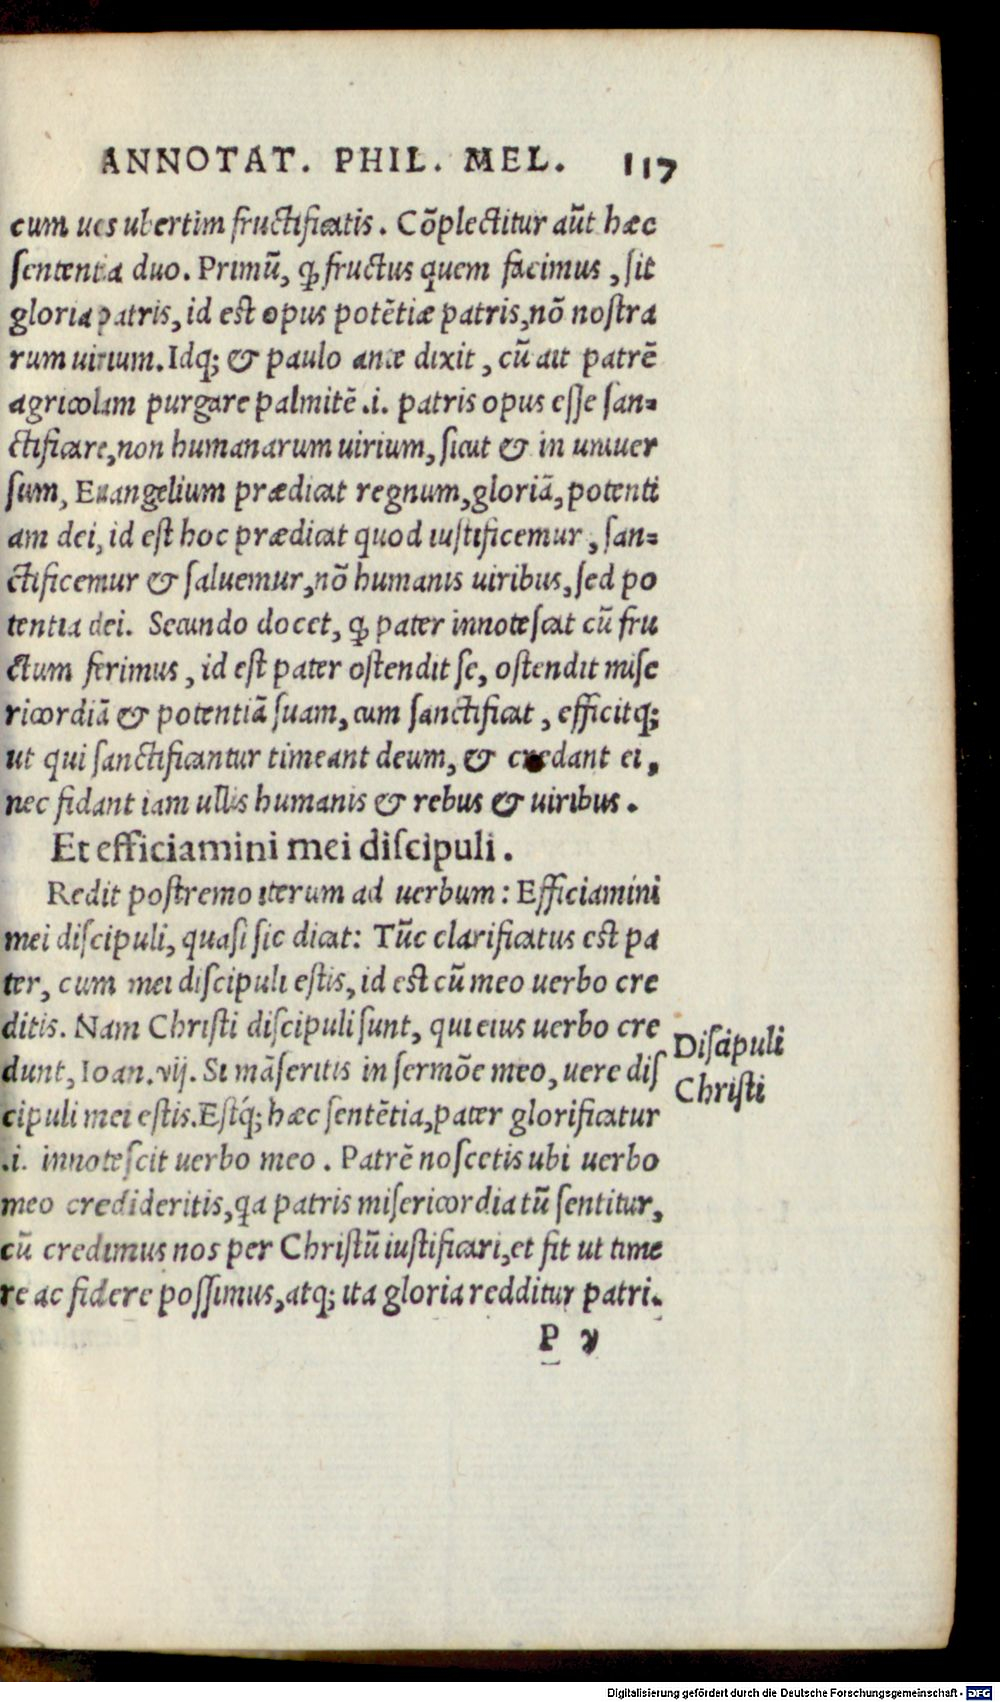 ANNOTAT. PHIL. MEL. 117
cum ues ubertim fructificatis. Cõplectitur aũt hæc
sententia duo. Primũ, ꝙ fructus quem facimus, sit
gloria patris, id est opus potẽtiæ patris, nõ nostra
rum uirium. Idq; & paulo ante dixit, cũ ait patrẽ
agricolam purgare palmitẽ .i. patris opus esse san-
ctificare, non humanarum uirium, sicut & in uniuer
sum, Euangelium prædicat regnum, gloriã, potenti
am dei, id est hoc prædicat quod iustificemur, san-
ctificemur & saluemur, nõ humanis uiribus, sed po
tentia dei. Secundo docet, ꝙ pater innotescat cũ fru
ctum ferimus, id est pater ostendit se, ostendit mise
ricordiã & potentiã suam, cum sanctificat, efficitq;
ut qui sanctificantur timeant deum, & credant ei,
nec fidant iam ullis humanis & rebus & uiribus.
Et efficiamini mei discipuli.
Redit postremo iterum ad uerbum: Efficiamini
mei discipuli, quasi sic dicat: Tũc clarificatus est pa
ter, cum mei discipuli estis, id est cũ meo uerbo cre
ditis. Nam Christi discipuli sunt, qui eius uerbo cre
dunt, Ioan. vij. Si mãseritis in sermõe meo, uere dis
cipuli mei estis. Estq́; hæc sentẽtia, pater glorificatur
.i. innotescit uerbo meo. Patrẽ noscetis ubi uerbo
meo credideritis, qa patris misericordia tũ sentitur,
cũ credimus nos per Christũ iustificari, et fit ut time
re ac fidere possimus, atq; ita gloria redditur patri.
Discipuli
Christi
P v
Digitalisierung gefördert durch die Deutsche Forschungsgemeinschaft - DFG